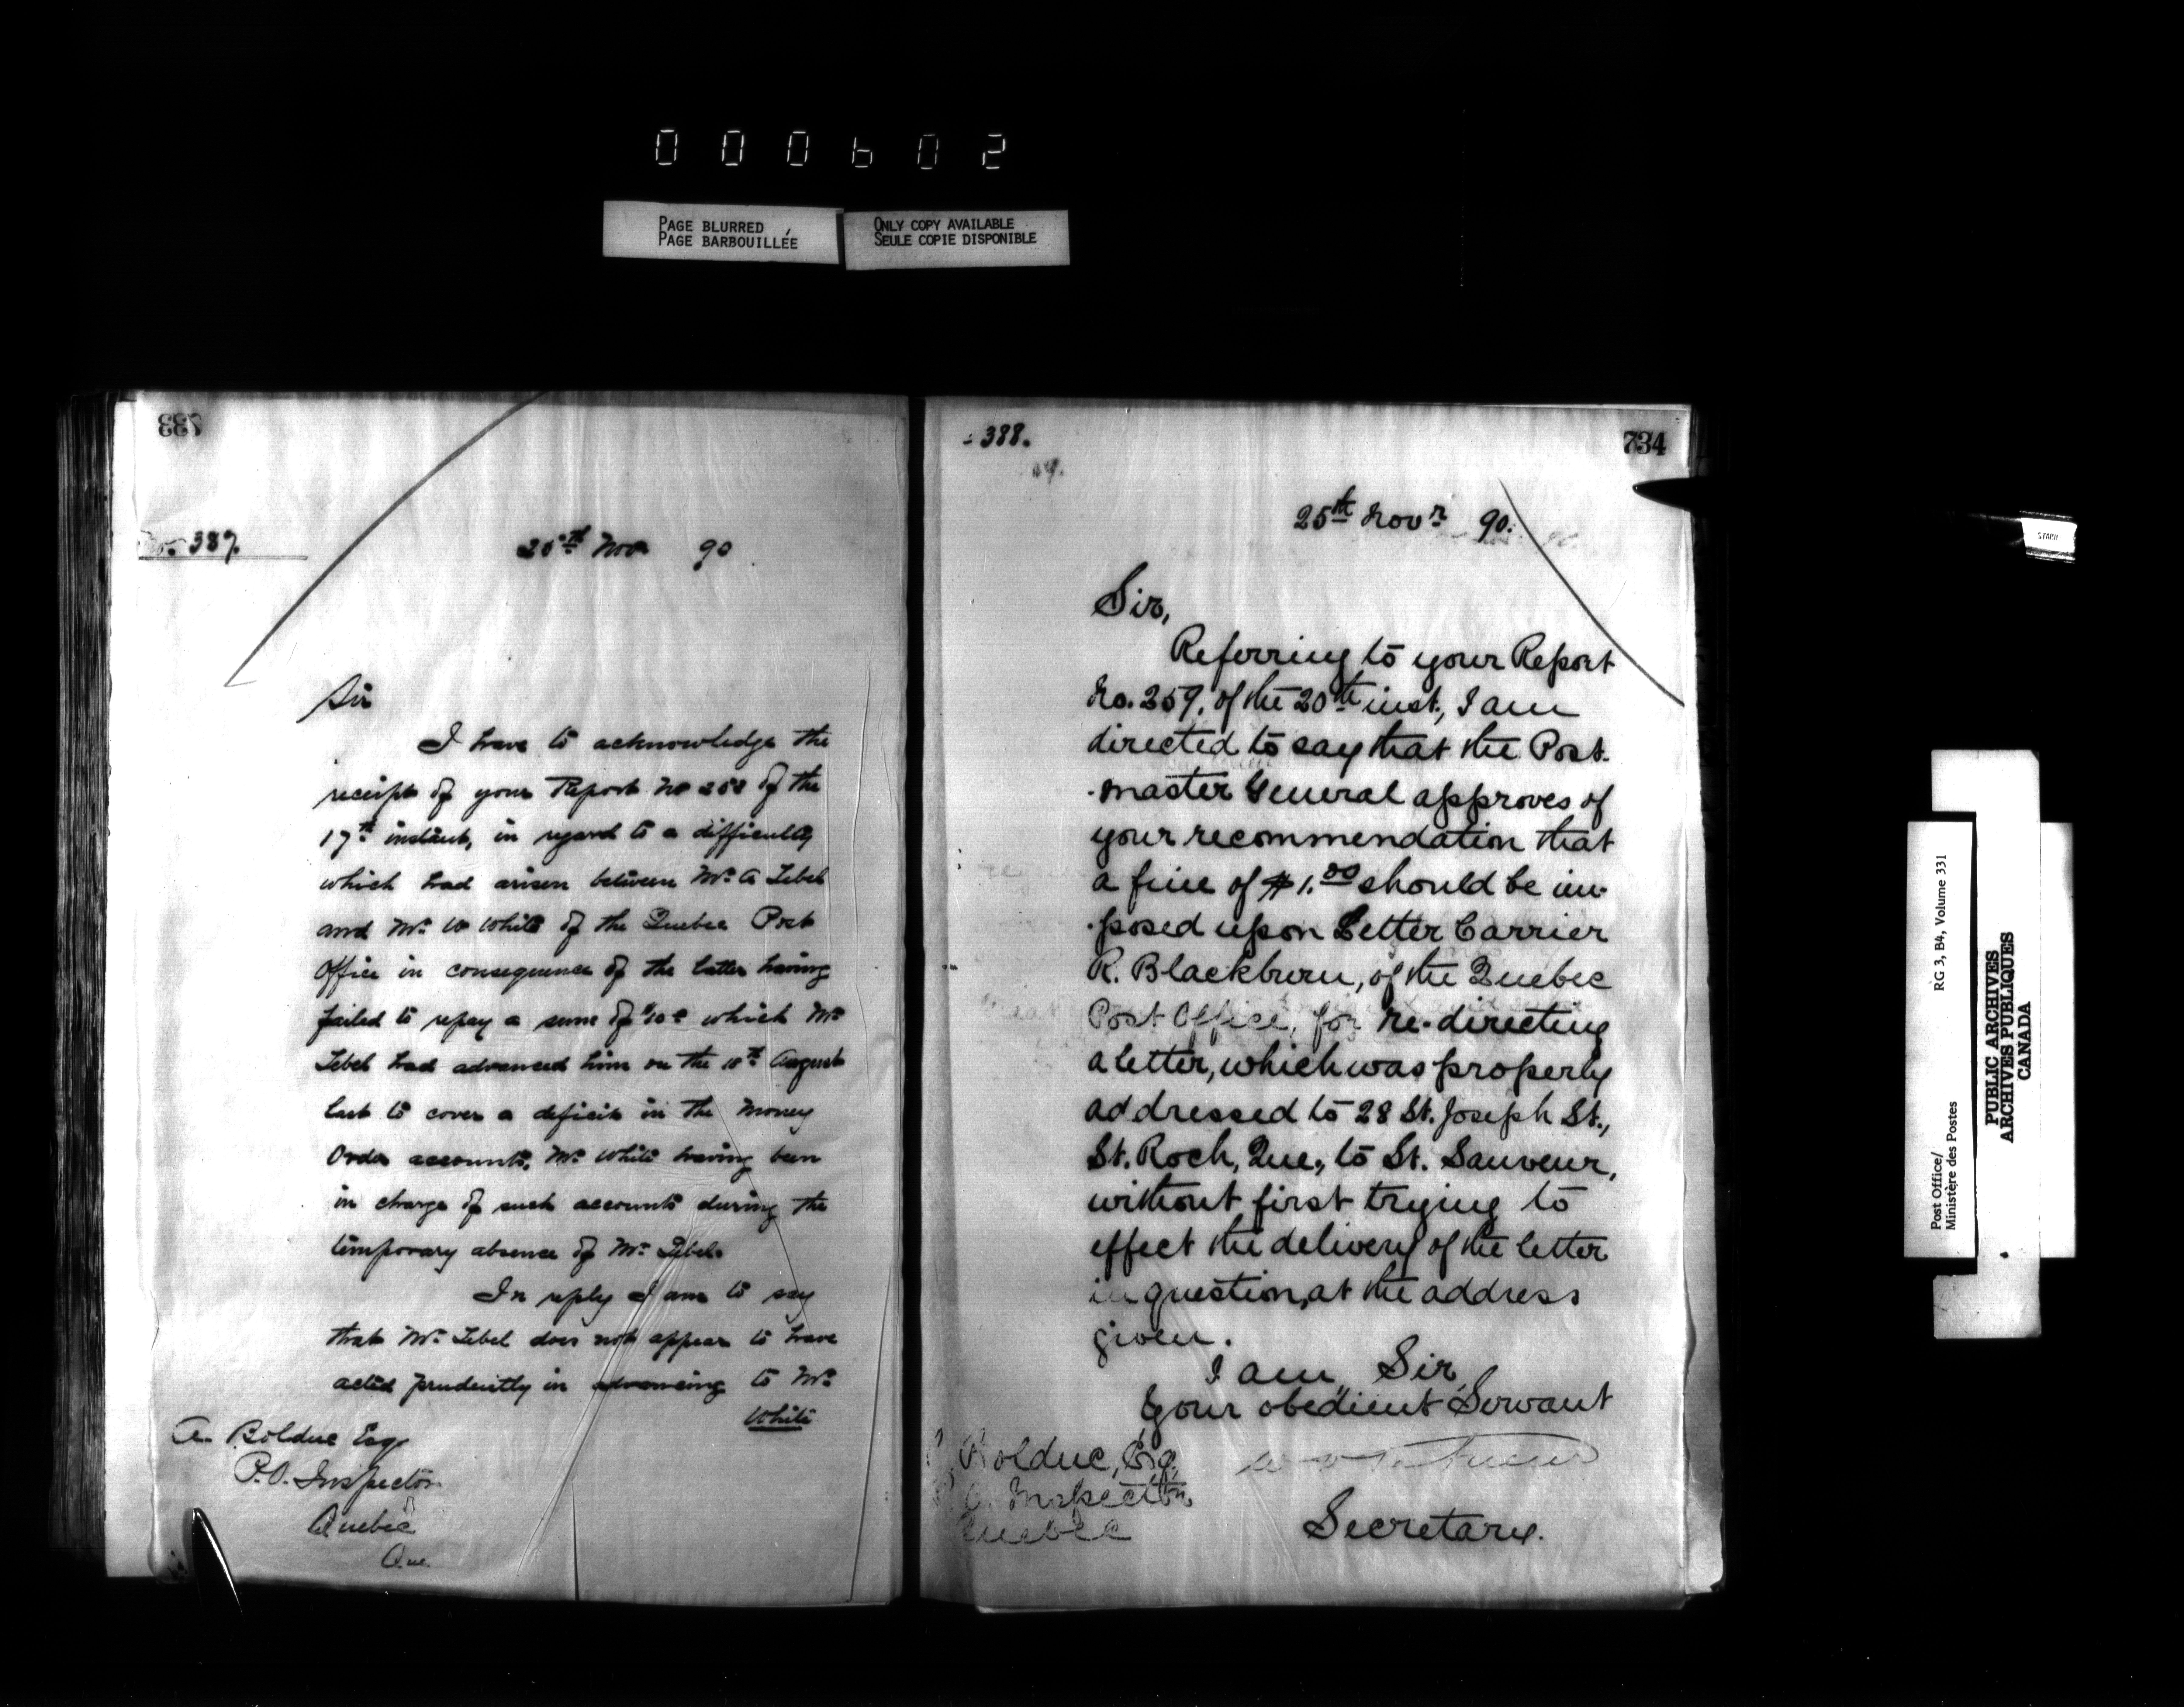 000602
PAGE BLURRED
PAGE BARBOUILLÉE
ONLY COPY AVAILABLE
SEULE COPIE DISPONIBLE
733
No. 387.
25th Nov 90
Sir
I have to acknowledge the
receipt of your Report No 258 of the
17th instant, in regard to a difficulty
which had arisen between Mr. A Lebel
and Mr. W White of the Quebec Post
Office in consequence of the latter having
failed to repay a sum of $10 which Mr
Lebel had advanced him on the 18th August
last to cover a deficit in the Money
Order accounts, Mr. White having been
in charge of such accounts during the
temporary absence of Mr. Lebel.
In reply I am to say
that Mr. Lebel does not appear to have
acted prudently in advancing to Mr.
White
A. Bolduc Esq
P.O. Inspector
Quebec
Que
388.
734
25th Novr. 90.
Sir,
Referring to your Report
No. 259, of the 20th inst., I am
directed to say that the Post-
-master General approves of
your recommendation that
a fine of $1.00 should be im-
-posed upon Letter Carrier
R. Blackburn, of the Quebec
Post Office, for re-directing
a letter, which was properly
addressed to 28 St. Joseph St.,
St. Roch, Que., to St. Sauveur,
without first trying to
effect the delivery of the letter
in question, at the address
given.
I am, Sir,
Your obedient Servant
Bolduc, Esq.
P.O. Inspector,
Quebec
Secretary.
STAPH
Post Office/
Ministère des Postes
RG 3, B4, Volume 331
PUBLIC ARCHIVES
ARCHIVES PUBLIQUES
CANADA